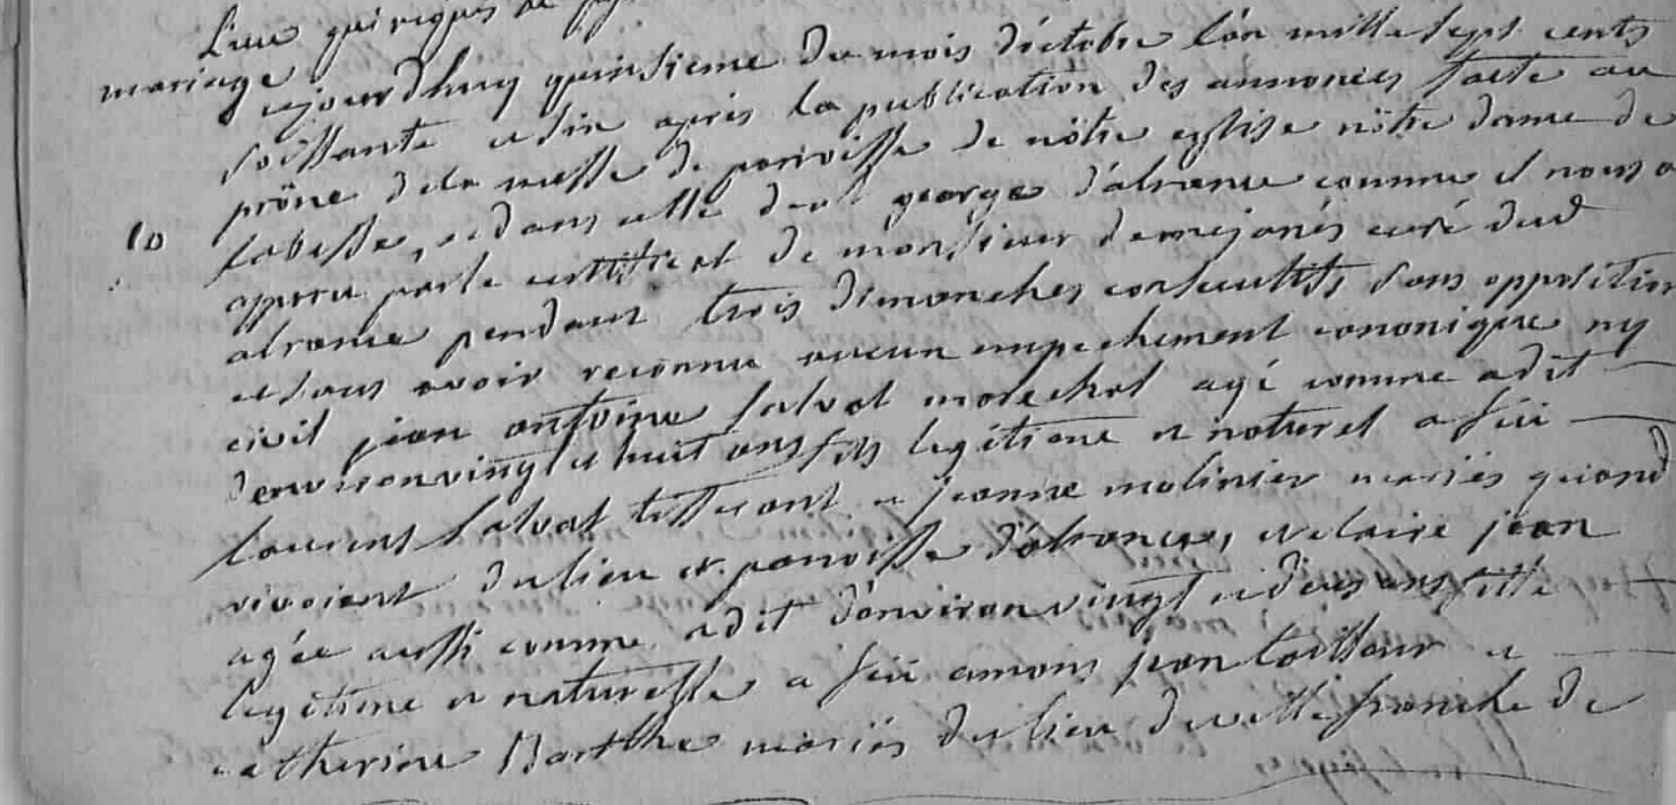 Lieu qui requis de
mariage
aujourdhuy quinsieme du mois d'octobre l'an mille sept cents
soissante et six après la publication des annonces faite au
prône dela messe de paroisse de nôtre eglise nôtre dame de
10
labesse, et dans celle de st george d'alrance comme il nous a
apparu par le certificat de monsieur demejanés curé dud
alrance pendant trois dimanches consecutifs, sans opposition
et sans avoir reconnu aucun empechement canonique ny
civil jean antoine salvat marechal agé comme a dit
denviron vingt et huit ans fils legitime et naturel a feu
laurens salvat tisserant et jeanne molinier mariés quand
vivoient du lieu et paroisse d'alrance, et claire jean
agée aussi comme a dit d'environ vingt et deux ans fille
legitime et naturelle a feu amans jean tailleur et
catherine Barthe mariés du lieu de villefranche de